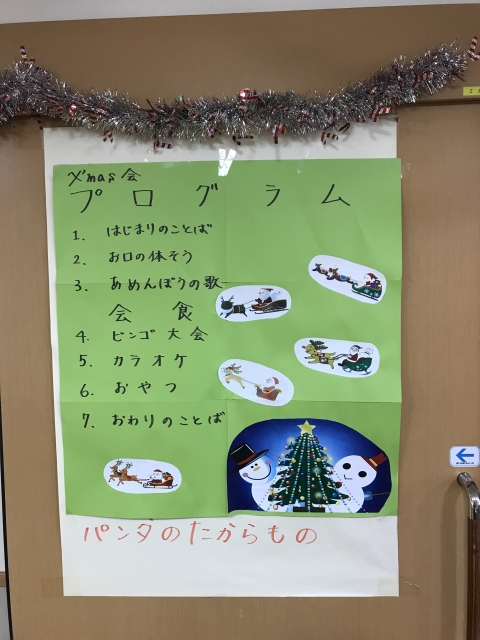 X'mas会
プログラム
1. はじまりのことば
2. お口の体そう
3. あめんぼうの歌
会食
4. ビンゴ大会
5. カラオケ
6. おやつ
7. おわりのことば
パンダのたからもの